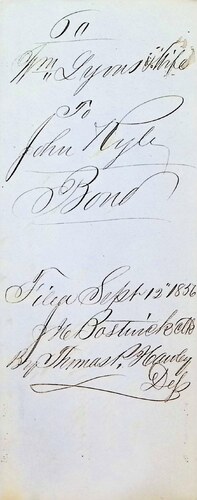 To
Wm Lyons & Wife
To
John Kyle
Bond
Filed Sept 12" 1856
Bostwick Clk
By Thomas P. Hawley
Dep